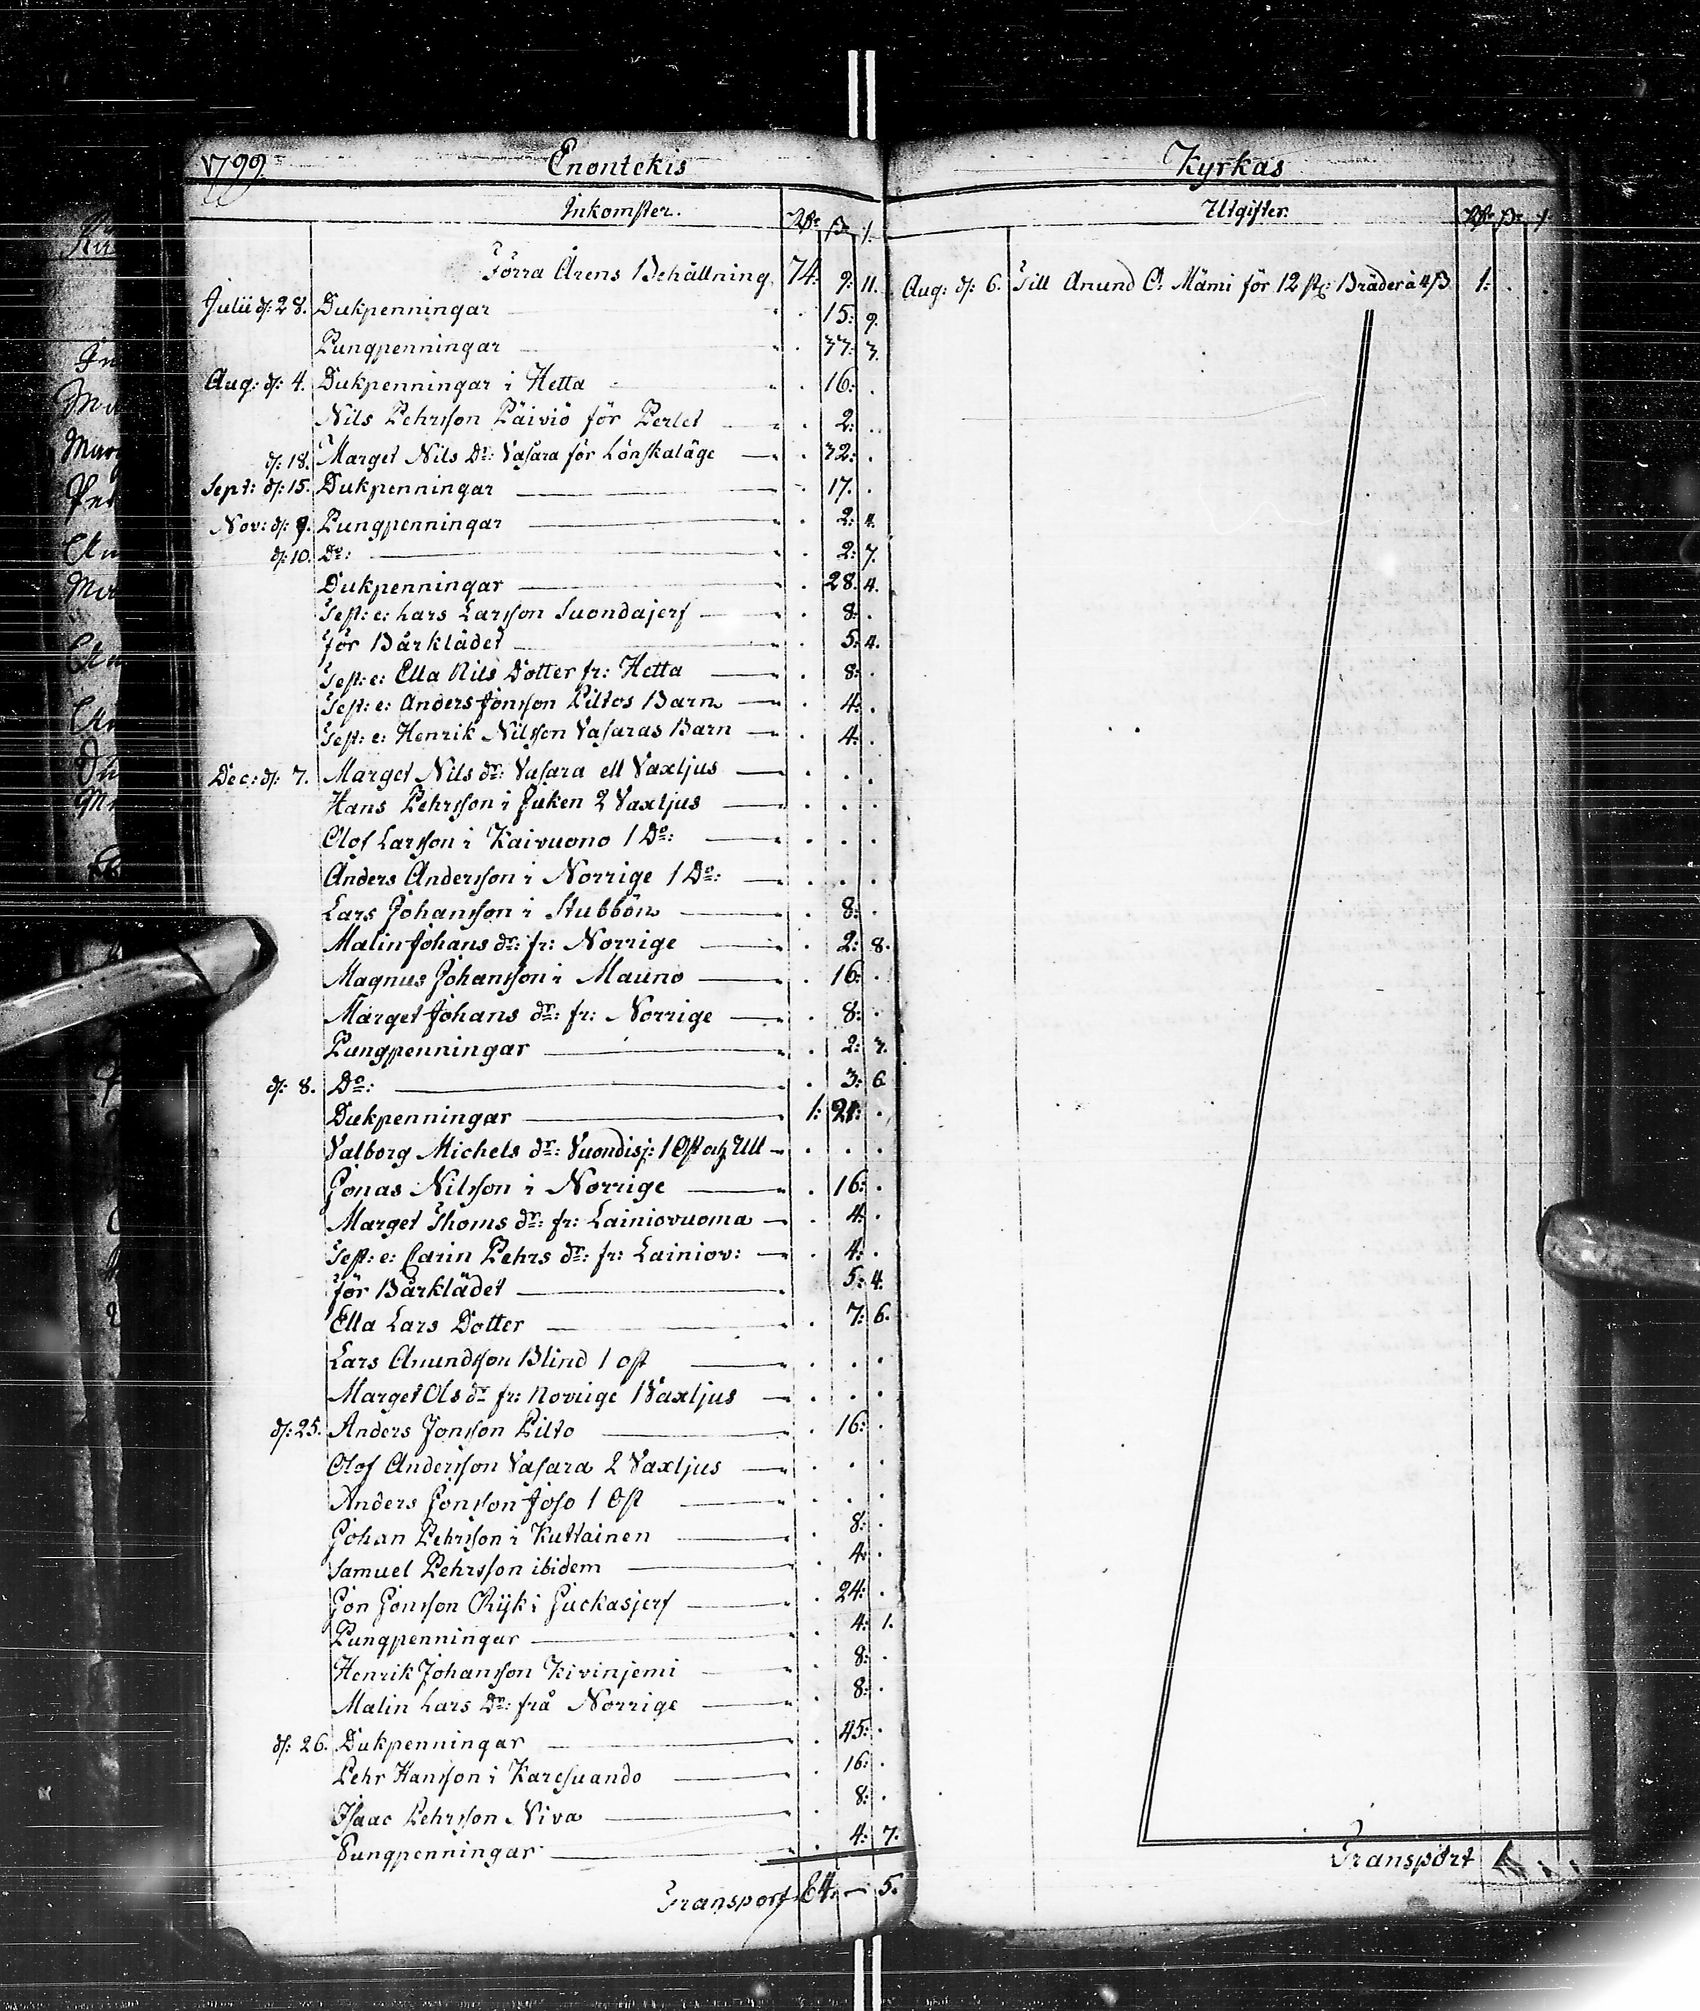 1799 Enontekis
Inkomster. Rdr ß r.
Förra Årens Behållning 74: 9: 11.
Julii d: 28. Dukpenningar . 15: 9.
Pungpenningar . 37: 3.
Aug: d: 4. Dukpenningar i Hetta . 16: .
Nils Pehrsson Päiviö för Perlet . 2: .
d: 18. Marget Nils Dr: Vasara för Lönskaläge . 32: .
Sept: d: 15. Dukpenningar . 17. .
Nov: d: 9. Pungpenningar . 2: 4.
d: 10. Do: . 2: 7.
Dukpenningar . 28. 4.
Test: e: Lars Larsson Suondajerf . 8: .
För Bårklädet . 5: 4.
Test: e: Ella Nils Dotter fr: Hetta . 8: .
Test: e: Anders Jönsson Piltos Barn . 4: .
Test: e: Henrik Nilsson Vasaras Barn . 4: .
Dec: d: 7. Marget Nils dr: Vasara ett Vaxljus . . .
Hans Pehrsson i Juken 2 Vaxljus . . .
Olof Larsson i Kaivuono 1 Do: . . .
Anders Andersson i Norrige 1 Do: . . .
Lars Johansson i Stubbön . 8: .
Malin Johans dr: fr: Norrige . 2: 8.
Magnus Johansson i Mauno . 16: .
Marget Johans dr: fr: Norrige . 8: .
Pungpenningar . 2: 3.
d: 8. Do: . 3: 6
Dukpenningar 1: 21: .
Valborg Michels dr: Vuondisj: 1 Ost och Ull . . .
Jonas Nilsson i Norrige . 16: .
Marget Thoms dr: fr: Lainiovuoma . 4: .
Test: e: Carin Pehrs dr: fr: Lainiov: . 4: .
För Bårklädet 5: 4.
Ella Lars Dotter . 7: 6.
Lars Anundsson Blind 1 ost . . .
Marget Ols dr fr: Norrige 1 Vaxljus . . .
d: 25. Anders Jonsson Pilto . 16: .
Olof Andersson Vasara 2 Vaxljus . . .
Anders Jonsson Joso 1 Ost . . .
Johan Pehrsson i Kuttainen . 8: .
Samuel Pehrsson ibidem . 4: .
Jon Jonsson Rijk i Juckasjerf . 24: .
Pungpenningar . 4: 1.
Henrik Johansson Kivinjemi . 8: .
Malin Lars Dr: frå Norrige . 8: .
d: 26. Dukpenningar . 45: .
Pehr Hansson i Karesuando . 16: .
Isaac Pehrsson Niva . 8: .
Pungpenningar . 4: 7.
Transport 84. — 5.
Kyrkas
Utgifter. Rdr ß r
Aug: d: 6. Till Anund O: Mämi för 12 st: Bräder à 4 ß 1: . .
Transport